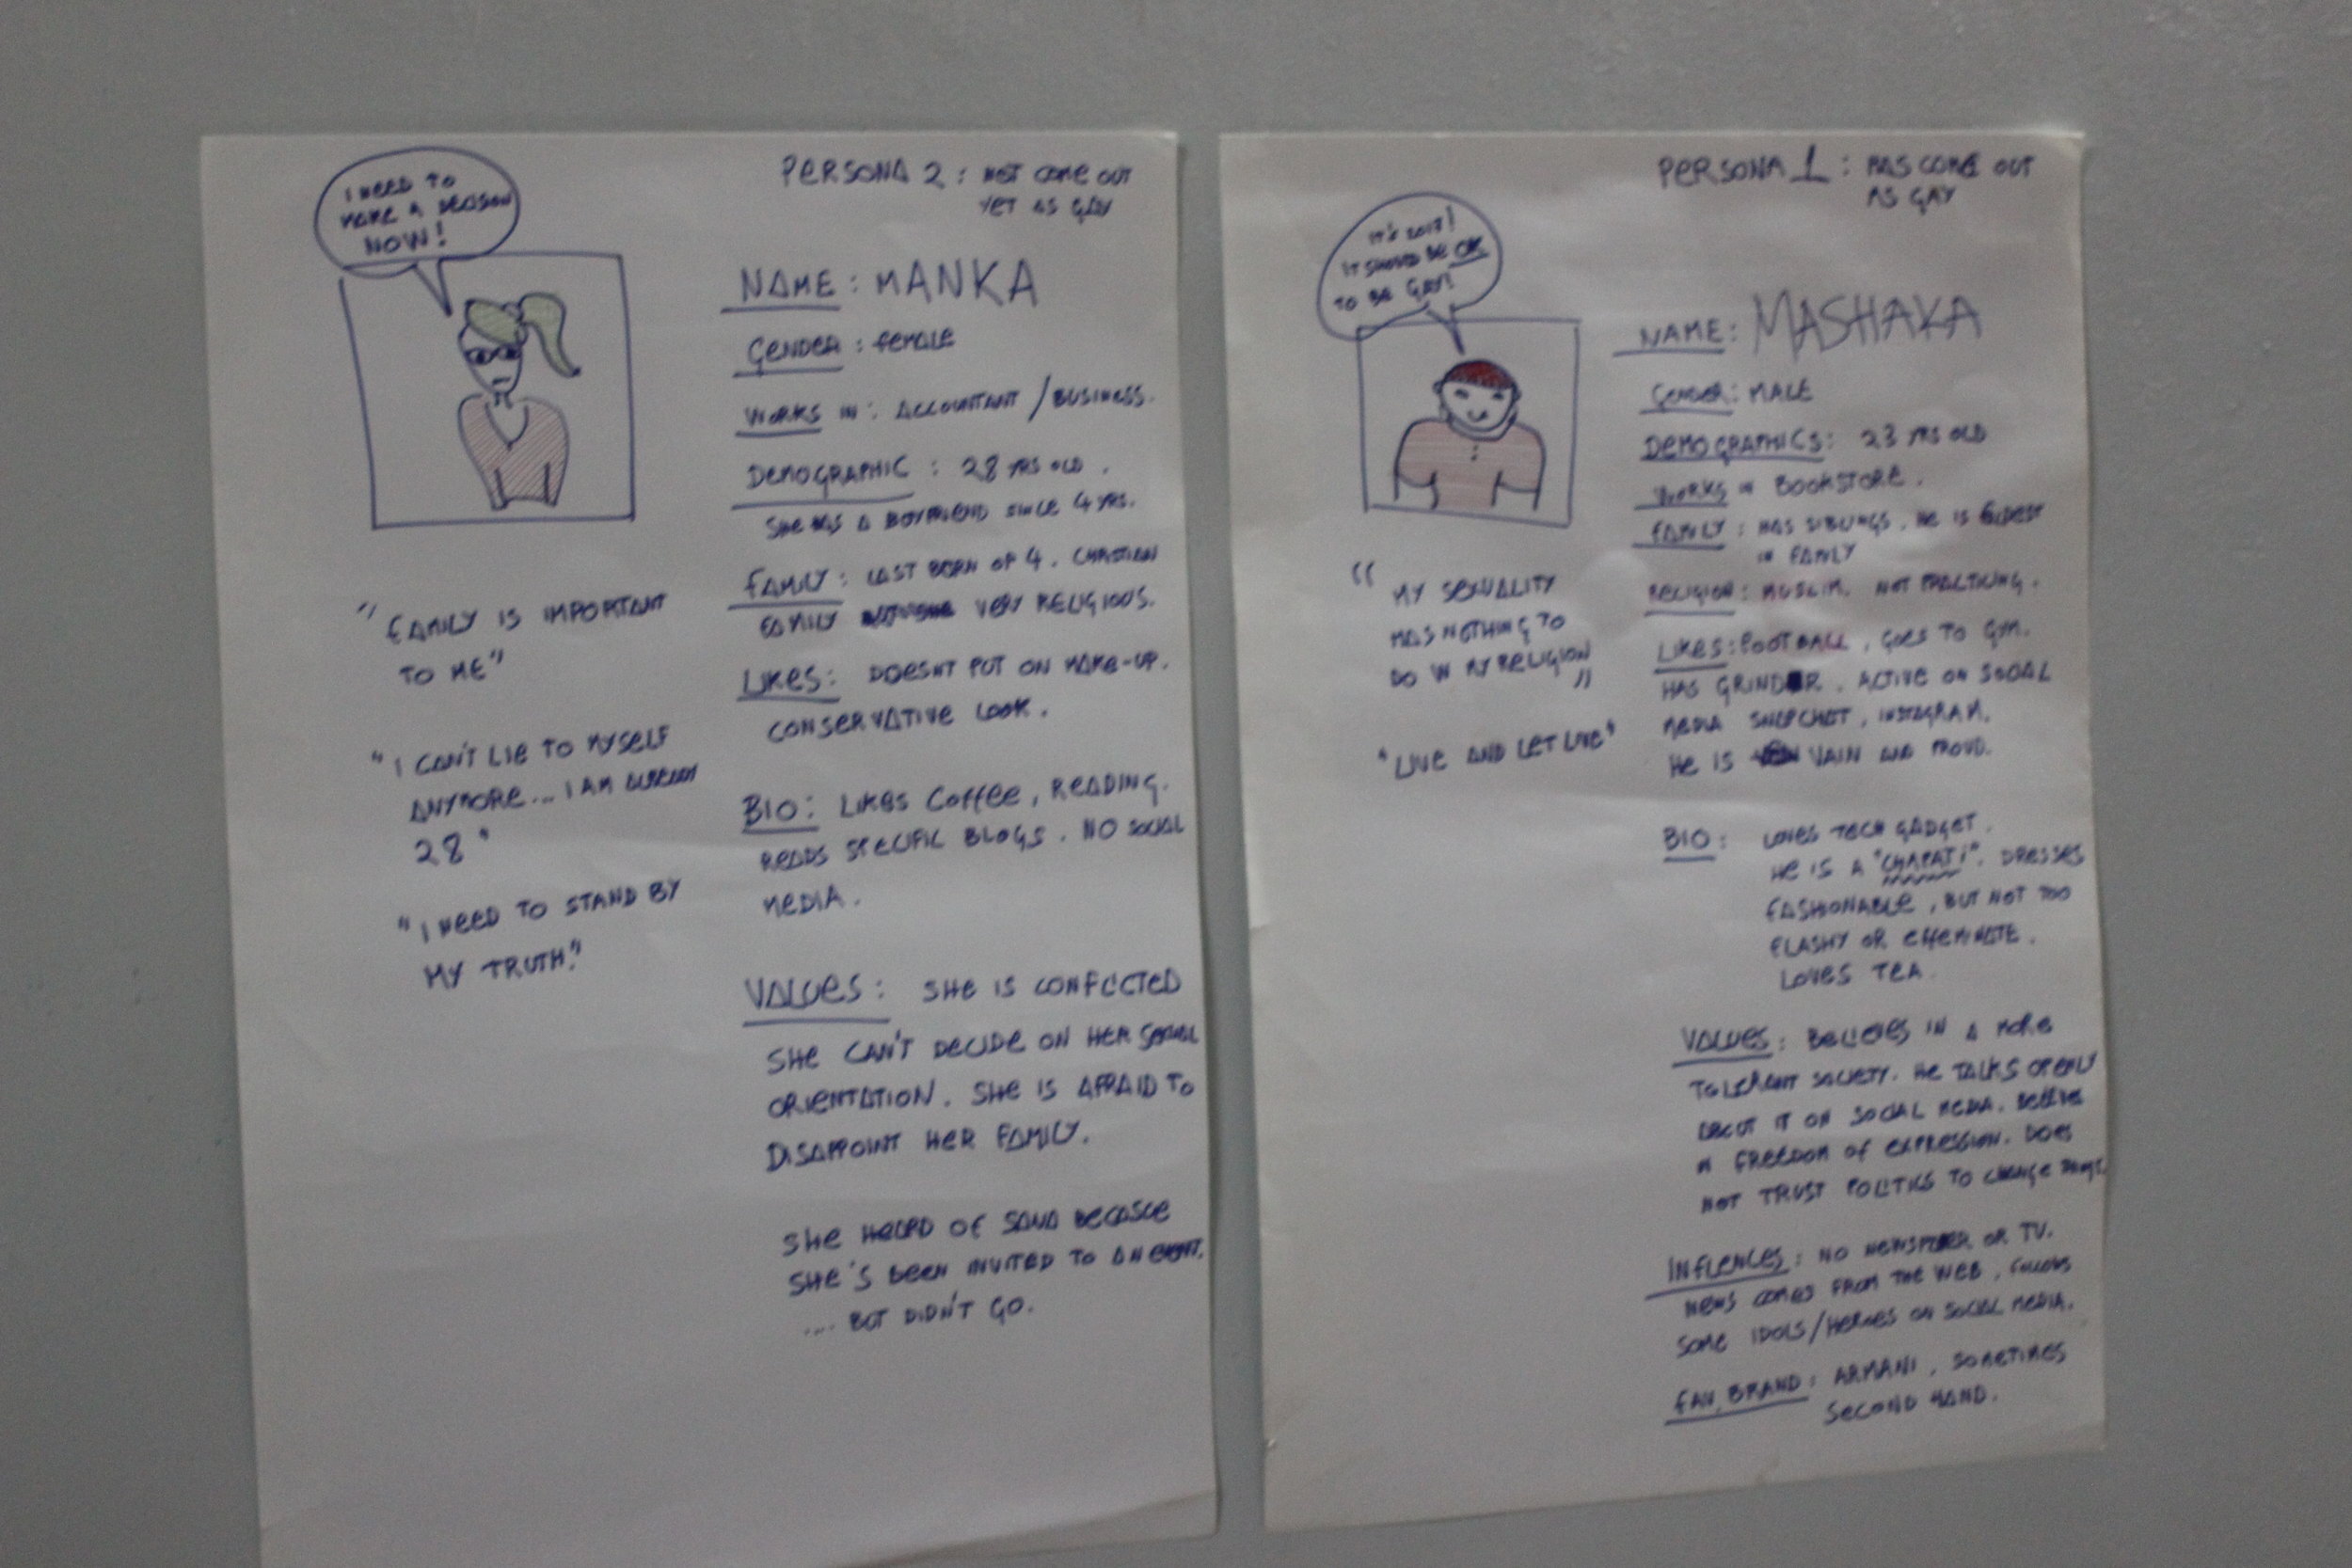 I NEED TO
MAKE A DECISION
NOW!
PERSONA 2 : NOT COME OUT
YET AS GAY
NAME : MANKA
GENDER : FEMALE
WORKS IN : ACCOUNTANT / BUSINESS.
DEMOGRAPHIC : 28 YRS OLD .
SHE HAS A BOYFRIEND SINCE 4 YRS.
FAMILY : LAST BORN OF 4 . CHRISTIAN
FAMILY VERY RELIGIOUS.
LIKES : DOESNT PUT ON MAKE-UP.
CONSERVATIVE LOOK .
BIO : LIKES COFFEE , READING.
READS SPECIFIC BLOGS . NO SOCIAL
MEDIA .
VALUES : SHE IS CONFLICTED
SHE CAN'T DECIDE ON HER SEXUAL
ORIENTATION . SHE IS AFRAID TO
DISAPPOINT HER FAMILY.
SHE HEARD OF BECASUE
SHE'S BEEN INVITED TO AN EVENT.
.... BUT DIDN'T GO.
" FAMILY IS IMPORTANT
TO ME"
" I CAN'T LIE TO MYSELF
ANYMORE... I AM ALREADY
28 "
" I NEED TO STAND BY
MY TRUTH."
PERSONA 1 : HAS COME OUT
AS GAY
IT'S
IT SHOULD BE OK
TO BE GAY!
NAME : MASHAKA
GENDER : MALE
DEMOGRAPHICS : 23 YRS OLD
WORKS IN BOOKSTORE .
FAMILY : HAS SIBLINGS . HE IS ELDEST
IN FAMILY
RELIGION : MUSLIM. NOT PRACTICING .
LIKES : FOOTBALL , GOES TO GYM.
HAS GRINDR . ACTIVE ON SOCIAL
MEDIA SNAPCHAT , INSTAGRAM.
HE IS VAIN AND PROUD.
BIO : LOVES TECH GADGET .
HE IS A "CHAPATI". DRESSES
FASHIONABLE , BUT NOT TOO
FLASHY OR EFFEMINATE .
LOVES TEA .
VALUES : BELIEVES IN A MORE
TOLERANT SOCIETY. HE TALKS OPENLY
ABOUT IT ON SOCIAL MEDIA. BELIEVES
IN FREEDOM OF EXPRESSION. DOES
NOT TRUST POLITICS TO CHANGE THINGS.
INFLENCES : NO NEWSPAPER OR TV.
NEWS COMES FROM THE WEB , FOLLOWS
SOME IDOLS/HEROES ON SOCIAL MEDIA.
FAV. BRAND : ARMANI , SOMETIMES
SECOND HAND.
" MY SEXUALITY
HAS NOTHING TO
DO W MY RELIGION
"
" LIVE AND LET LIVE"